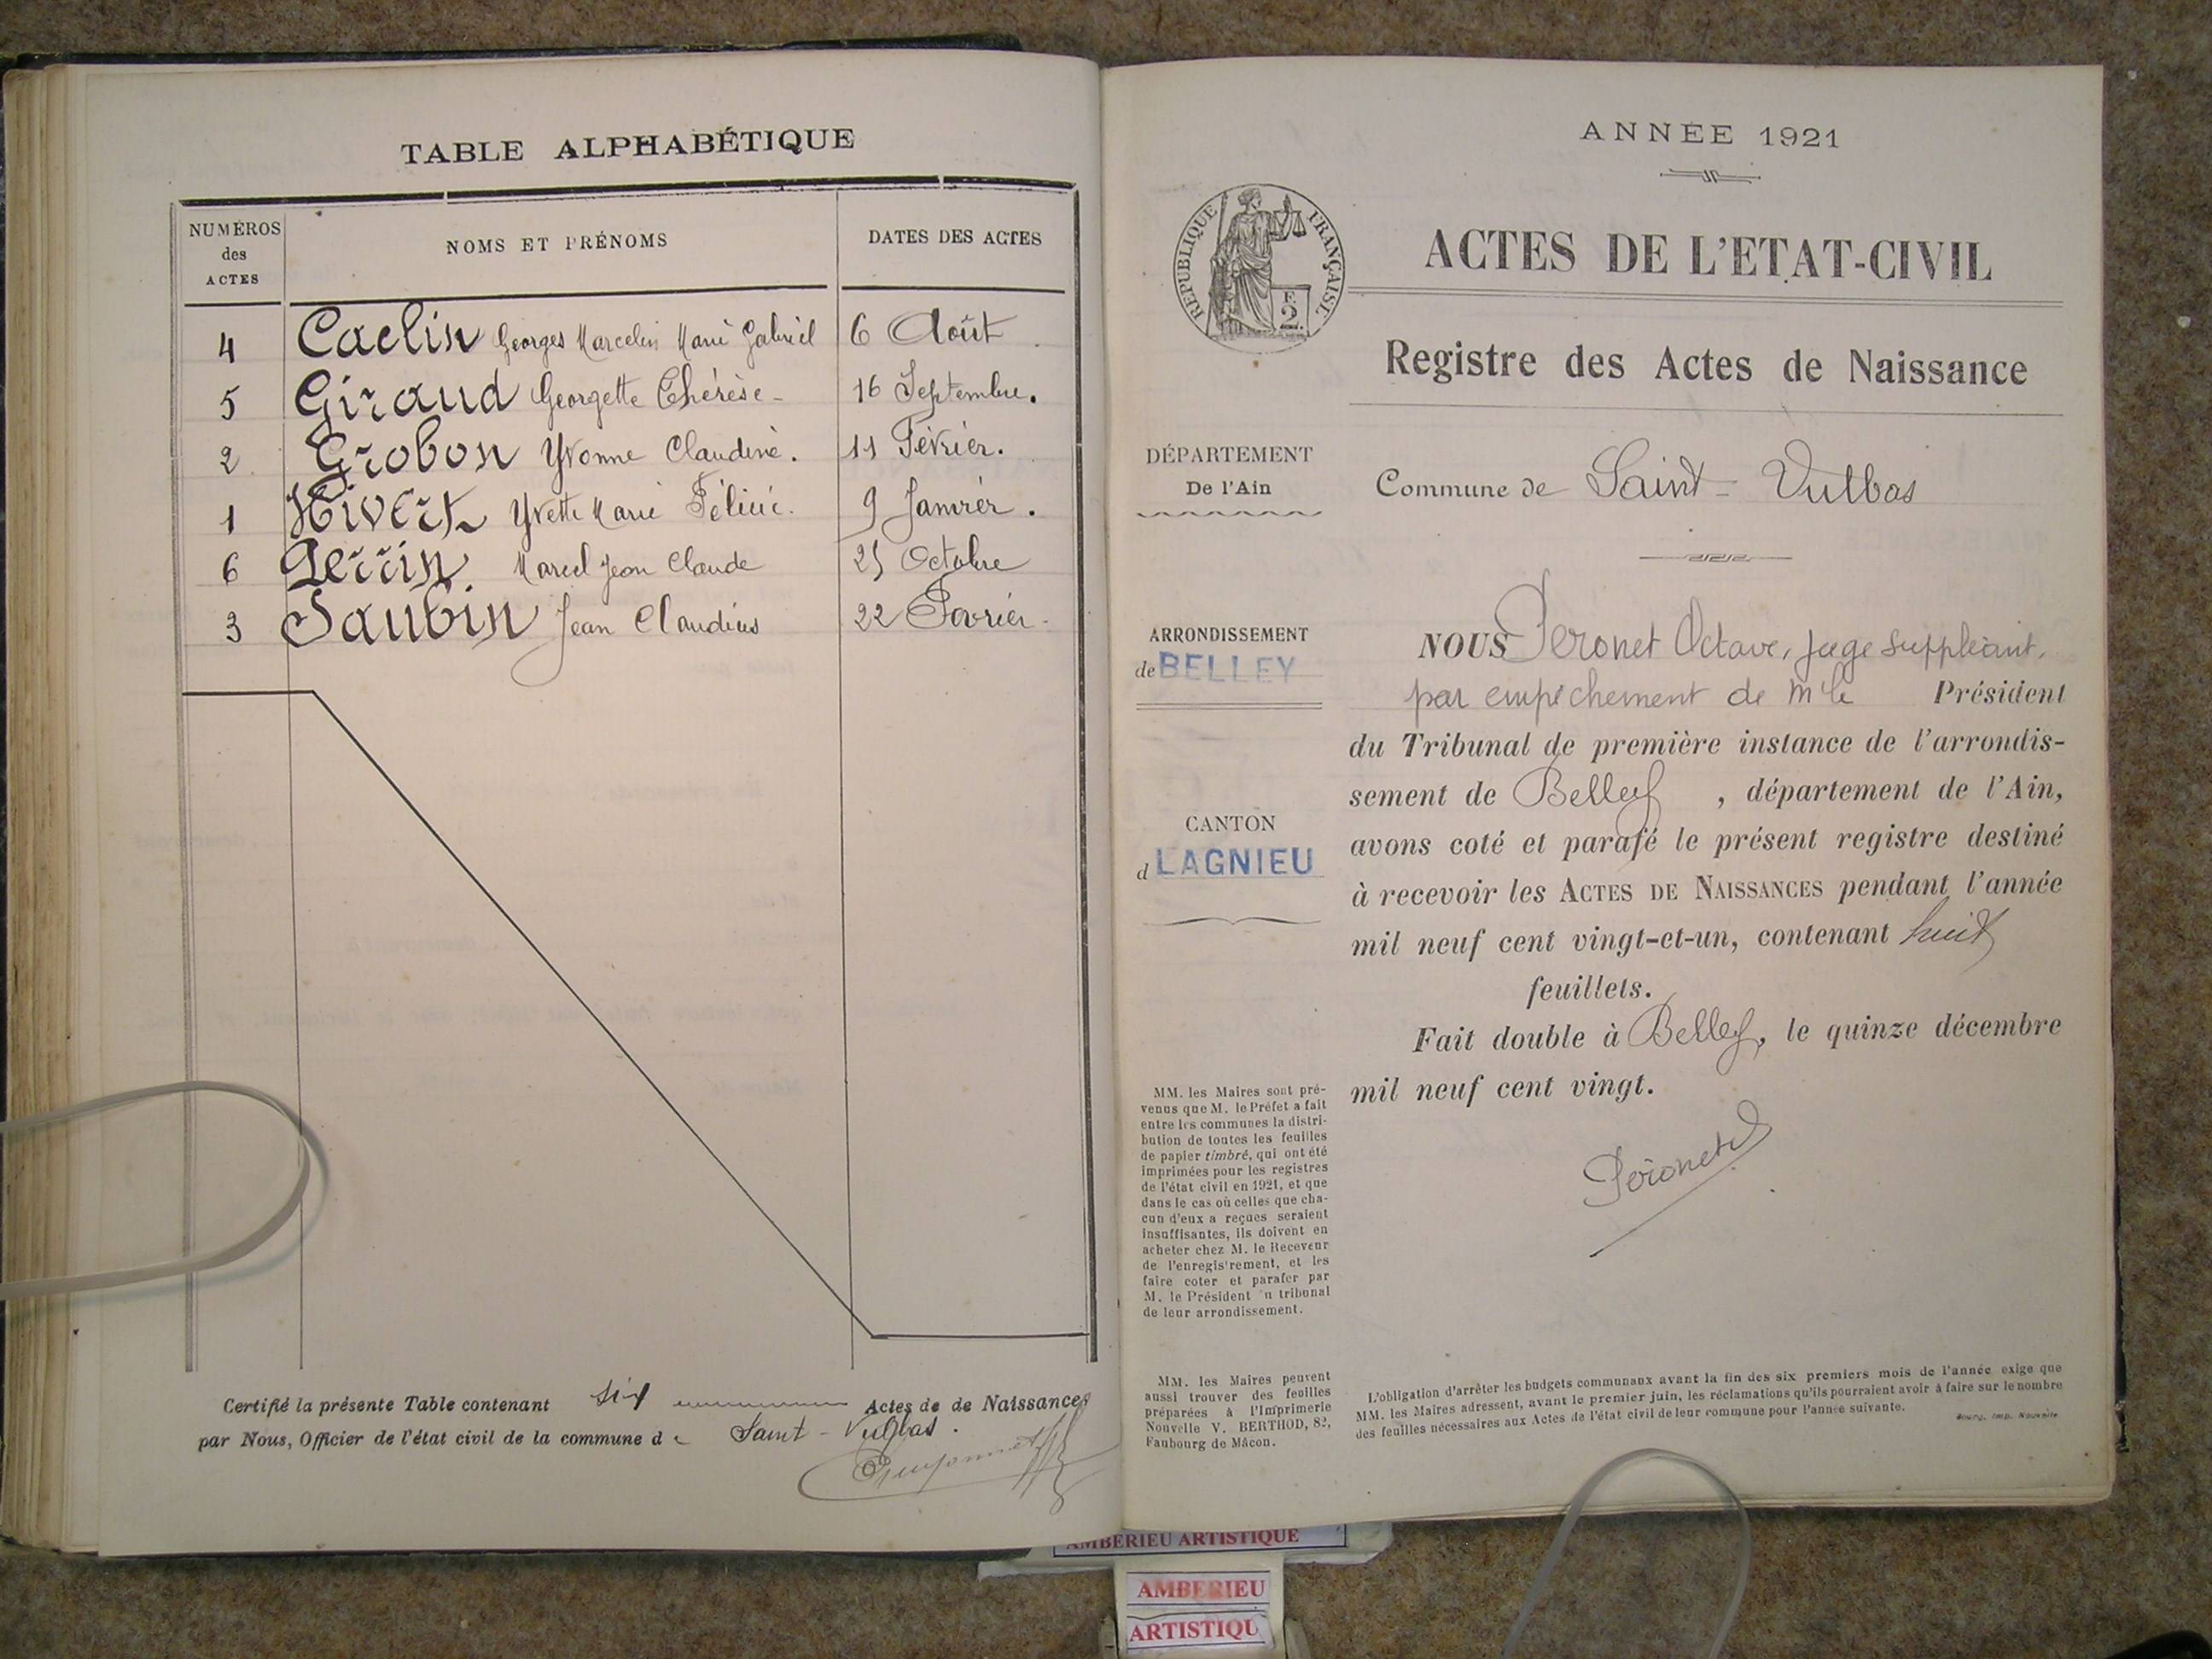 TABLE ALPHABÉTIQUE
NUMÉROS des ACTES
NOMS ET PRÉNOMS
DATES DES ACTES
4 Caelin Georges Marcelin Marie Gabriel 6 Août
5 Giraud Georgette Thérèse 16 Septembre.
2 Grobon Yvonne Claudine. 11 Février.
1 Hivert Yvette Marie Félicie. 9 Janvier.
6 Perrin. Marcel Jean Claude 25 Octobre
3 Saubin Jean Claudius 22 Fevrier
Certifié la présente Table contenant six Actes de de Naissances
par Nous, Officier de l'état civil de la commune de Saint-Vulbas.
ANNÉE 1921
RÉPUBLIQUE FRANÇAISE
2
ACTES DE L'ETAT-CIVIL
Registre des Actes de Naissance
DÉPARTEMENT
De l'Ain
Commune de Saint-Vulbas
ARRONDISSEMENT
de BELLEY
CANTON
d LAGNIEU
NOUS Peronet Octave, juge suppléant,
par empêchement de Mr le Président
du Tribunal de première instance de l'arrondis-
sement de Belley, département de l'Ain,
avons coté et parafé le présent registre destiné
à recevoir les ACTES DE NAISSANCES pendant l'année
mil neuf cent vingt-et-un, contenant huit
feuillets.
Fait double à Belley, le quinze décembre
mil neuf cent vingt.
Peronet
MM. les Maires sont pré-
venus que M. le Préfet a fait
entre les communes la distri-
bution de toutes les feuilles
de papier timbré, qui ont été
imprimées pour les registres
de l'état civil en 1921, et que
dans le cas où celles que cha-
cun d'eux a reçues seraient
insuffisantes, ils doivent en
acheter chez M. le Receveur
de l'enregistrement, et les
faire coter et parafer par
M. le Président u tribunal
de leur arrondissement.
MM. les Maires peuvent
aussi trouver des feuilles
préparées à l'Imprimerie
Nouvelle V. BERTHOD, 82,
Faubourg de Mâcon.
L'obligation d'arrêter les budgets communaux avant la fin des six premiers mois de l'année exige que
MM. les Maires adressent, avant le premier juin, les réclamations qu'ils pourraient avoir à faire sur le nombre
des feuilles nécessaires aux Actes de l'état civil de leur commune pour l'année suivante.
Bourg, Imp. Nouvelle
AMBERIEU ARTISTIQUE
AMBERIEU
ARTISTIQU